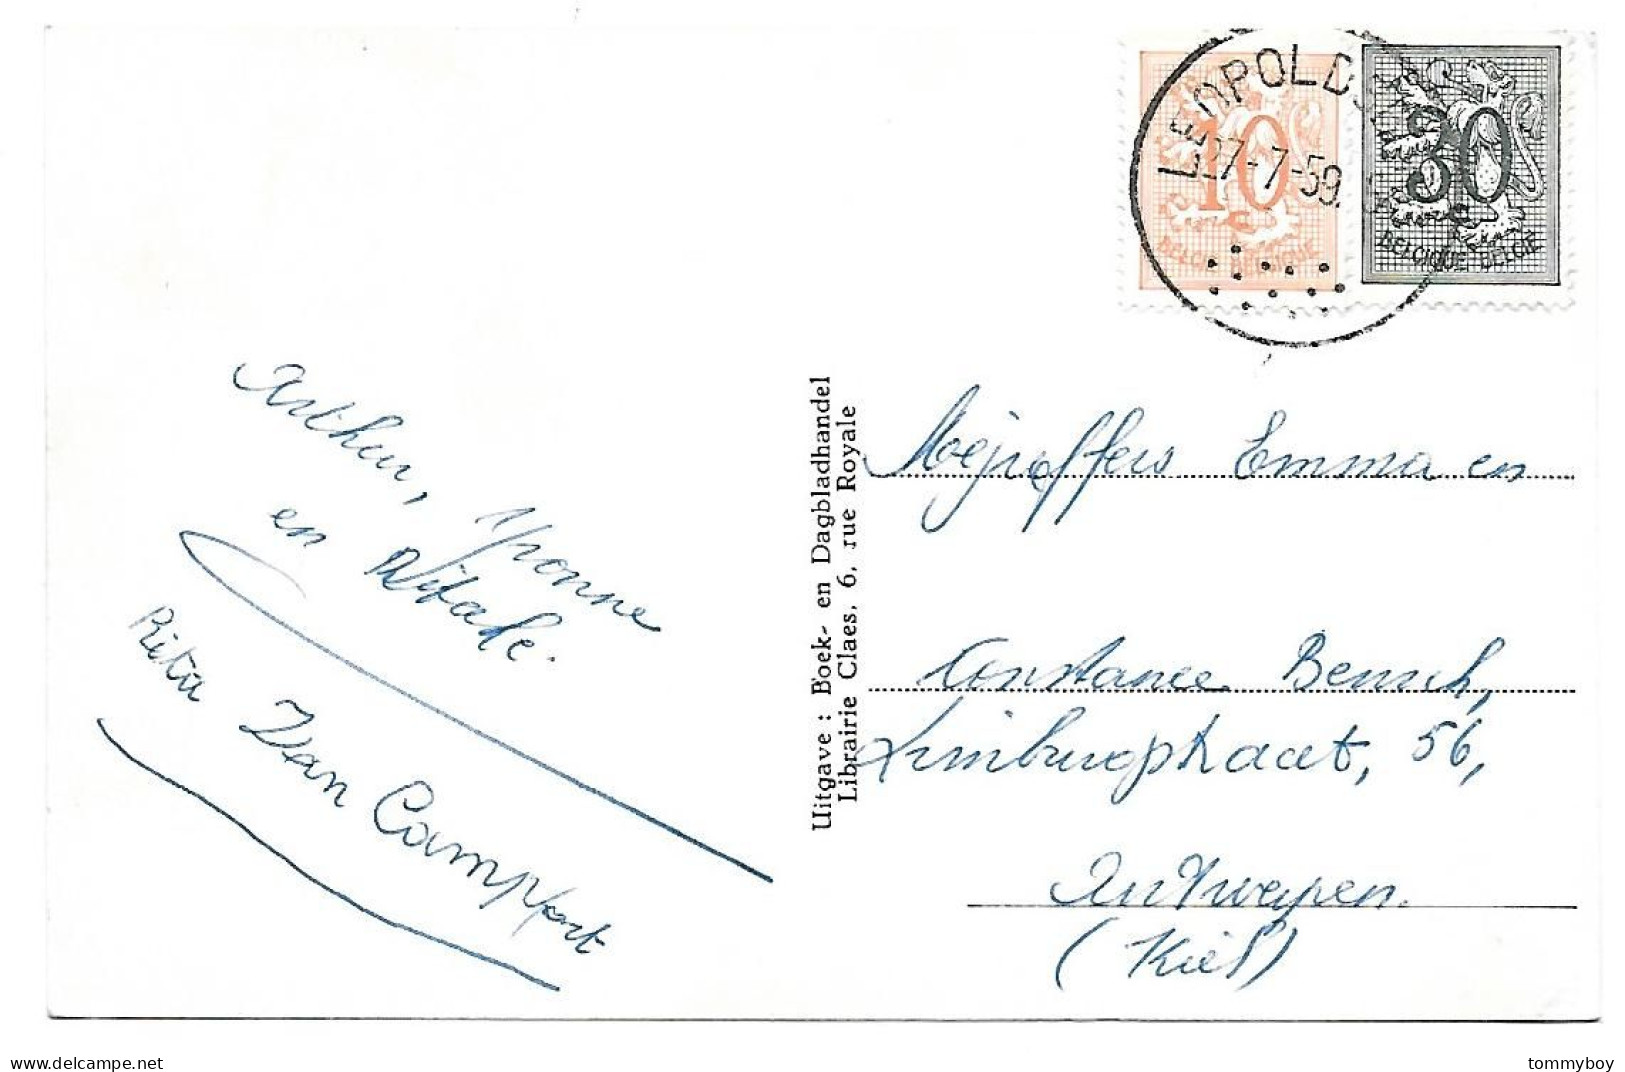 LEOPOLDS
27-7-59.
10
BELGIE BELGIQUE
30
BELGIQUE BELGIË
Arthur, Yvonne
en Vitale.
Rita Van Camp
Uitgave : Boek- en Dagbladhandel
Librairie Claes, 6, rue Royale
Mejuffers Emma en
Constance Bensch,
56,
Antwerpen.
(Kiel)
Delcampe.net
tommyboy